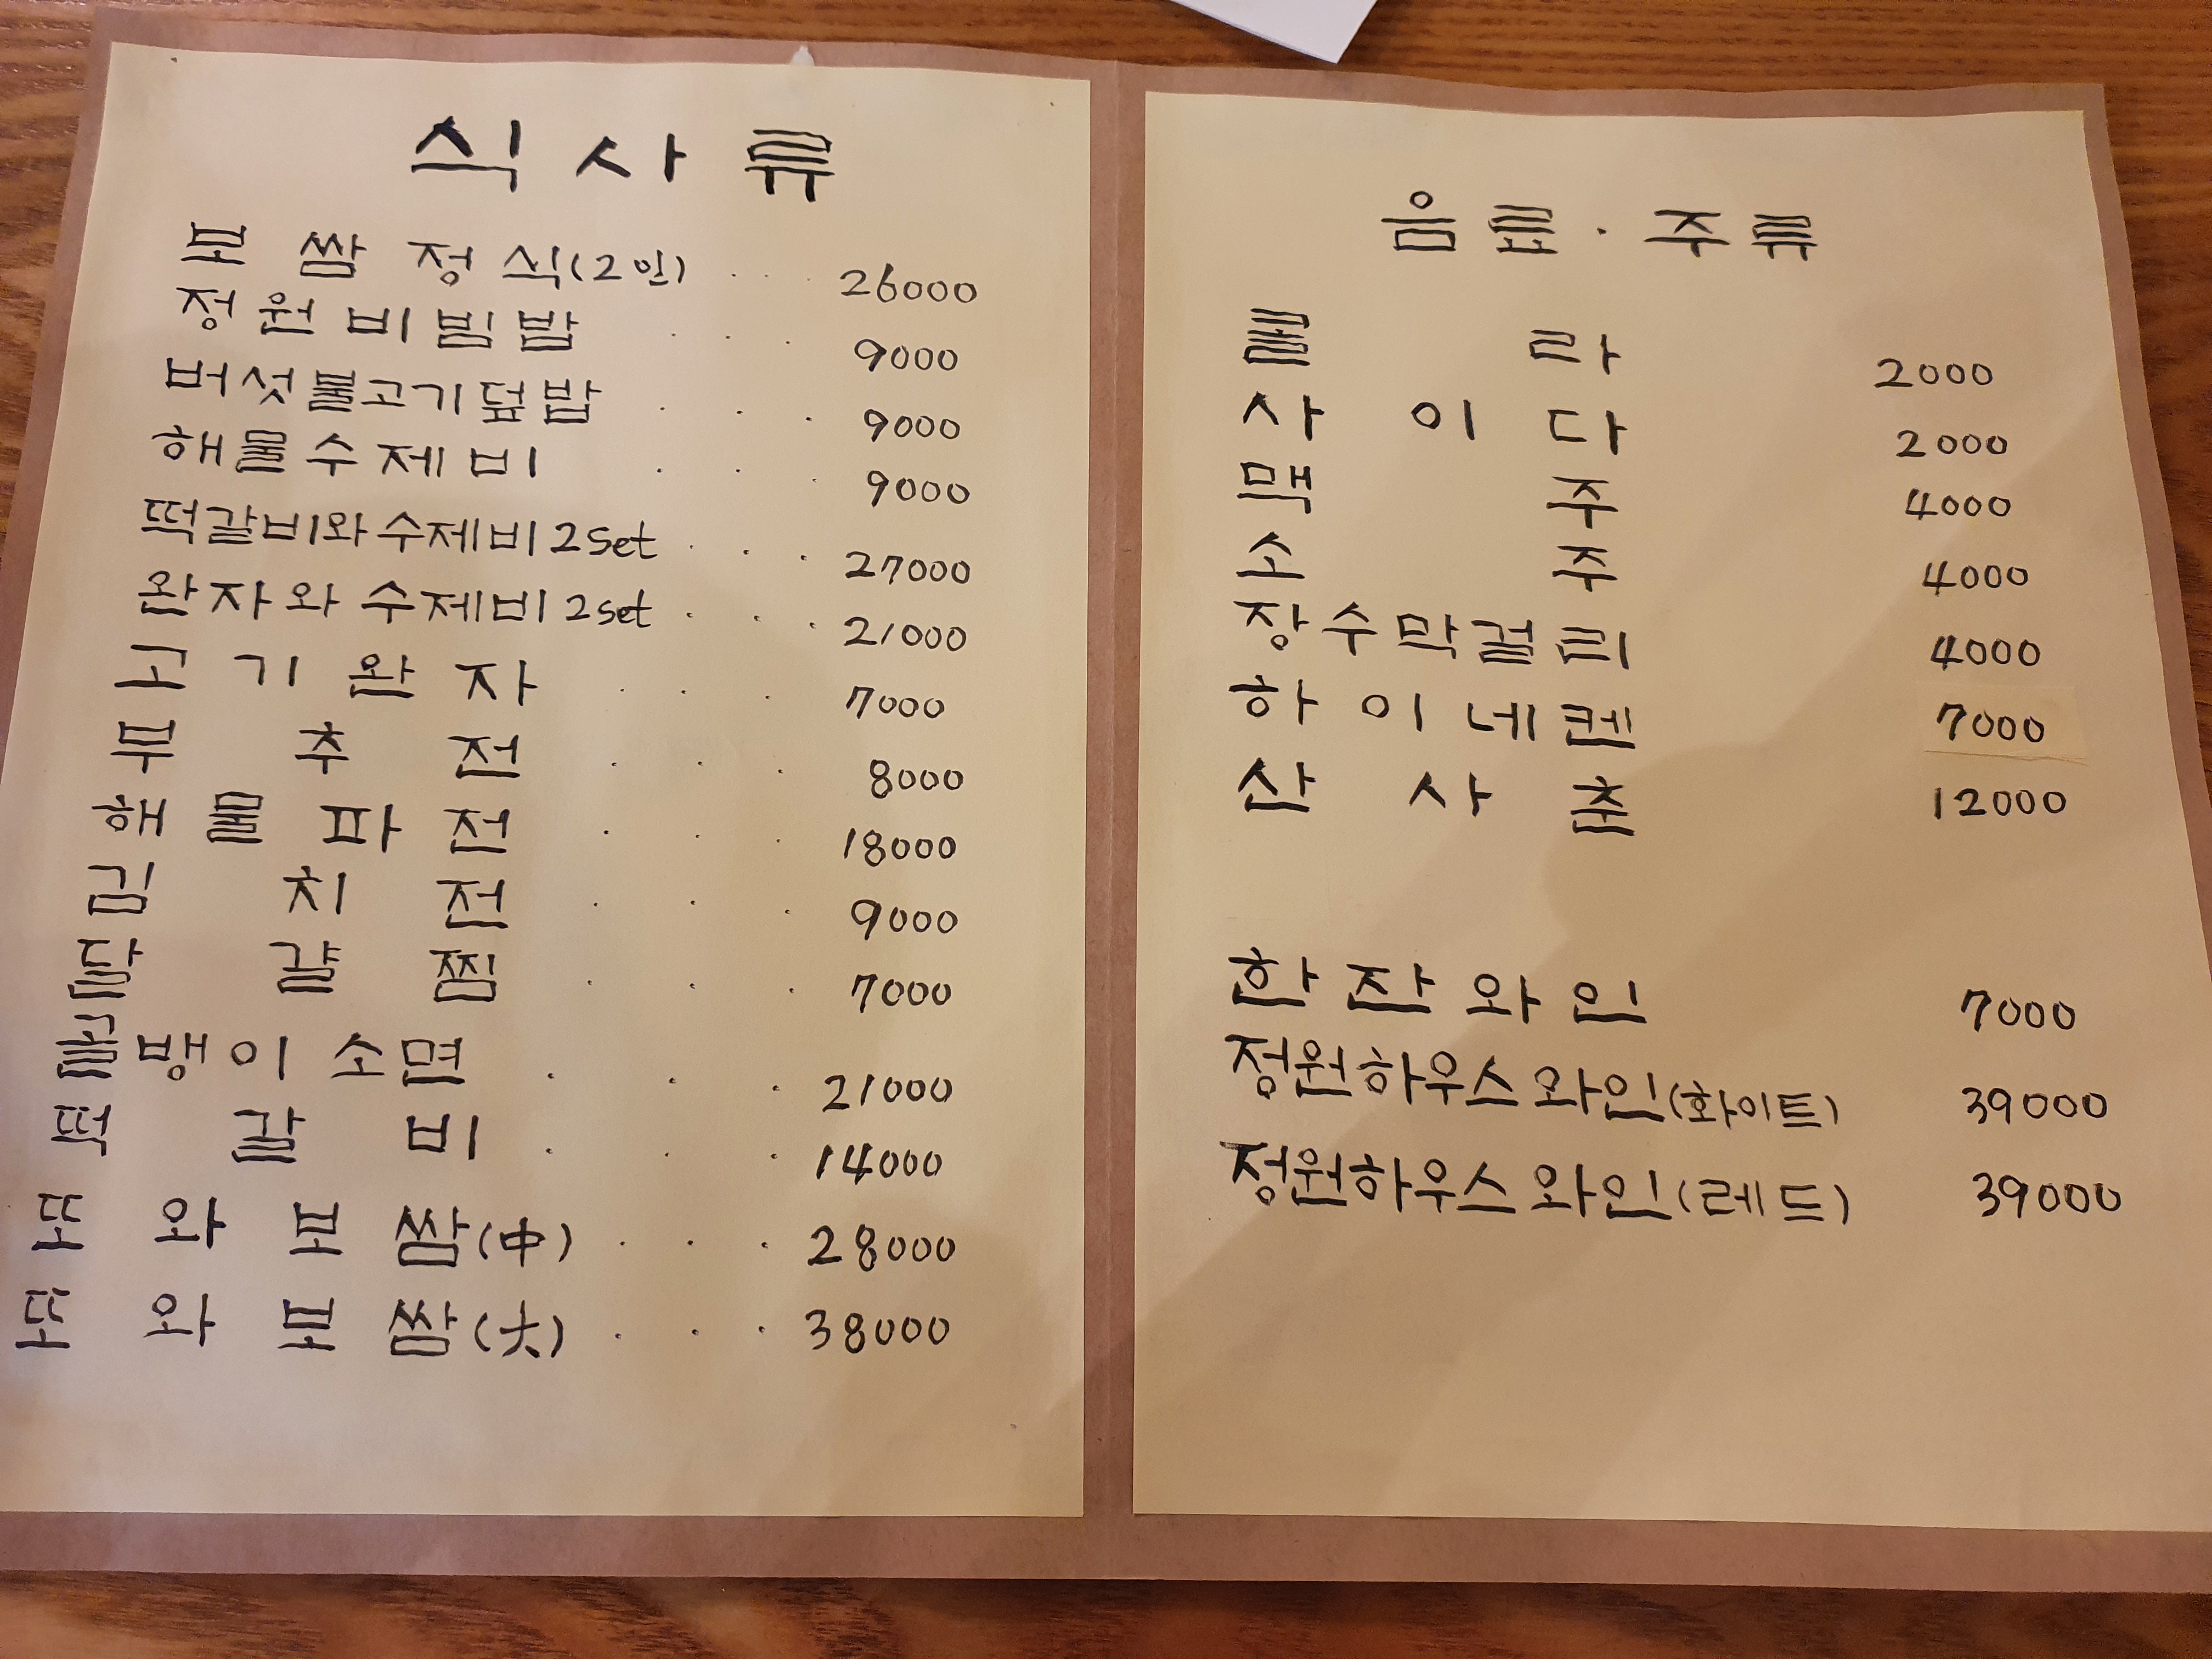 식사류
보쌈정식(2인) ... 26000
정원비빔밥 ... 9000
버섯불고기덮밥 ... 9000
해물수제비 ... 9000
떡갈비와수제비2set ... 27000
완자와수제비2set ... 21000
고기완자 ... 7000
부추전 ... 8000
해물파전 ... 18000
김치전 ... 9000
달걀찜 ... 7000
골뱅이소면 ... 21000
떡갈비 ... 14000
또와보쌈(中) ... 28000
또와보쌈(大) ... 38000
음료·주류
콜라 2000
사이다 2000
맥주 4000
소주 4000
장수막걸리 4000
하이네켄 7000
산사춘 12000
한잔와인 7000
정원하우스와인(화이트) 39000
정원하우스와인(레드) 39000